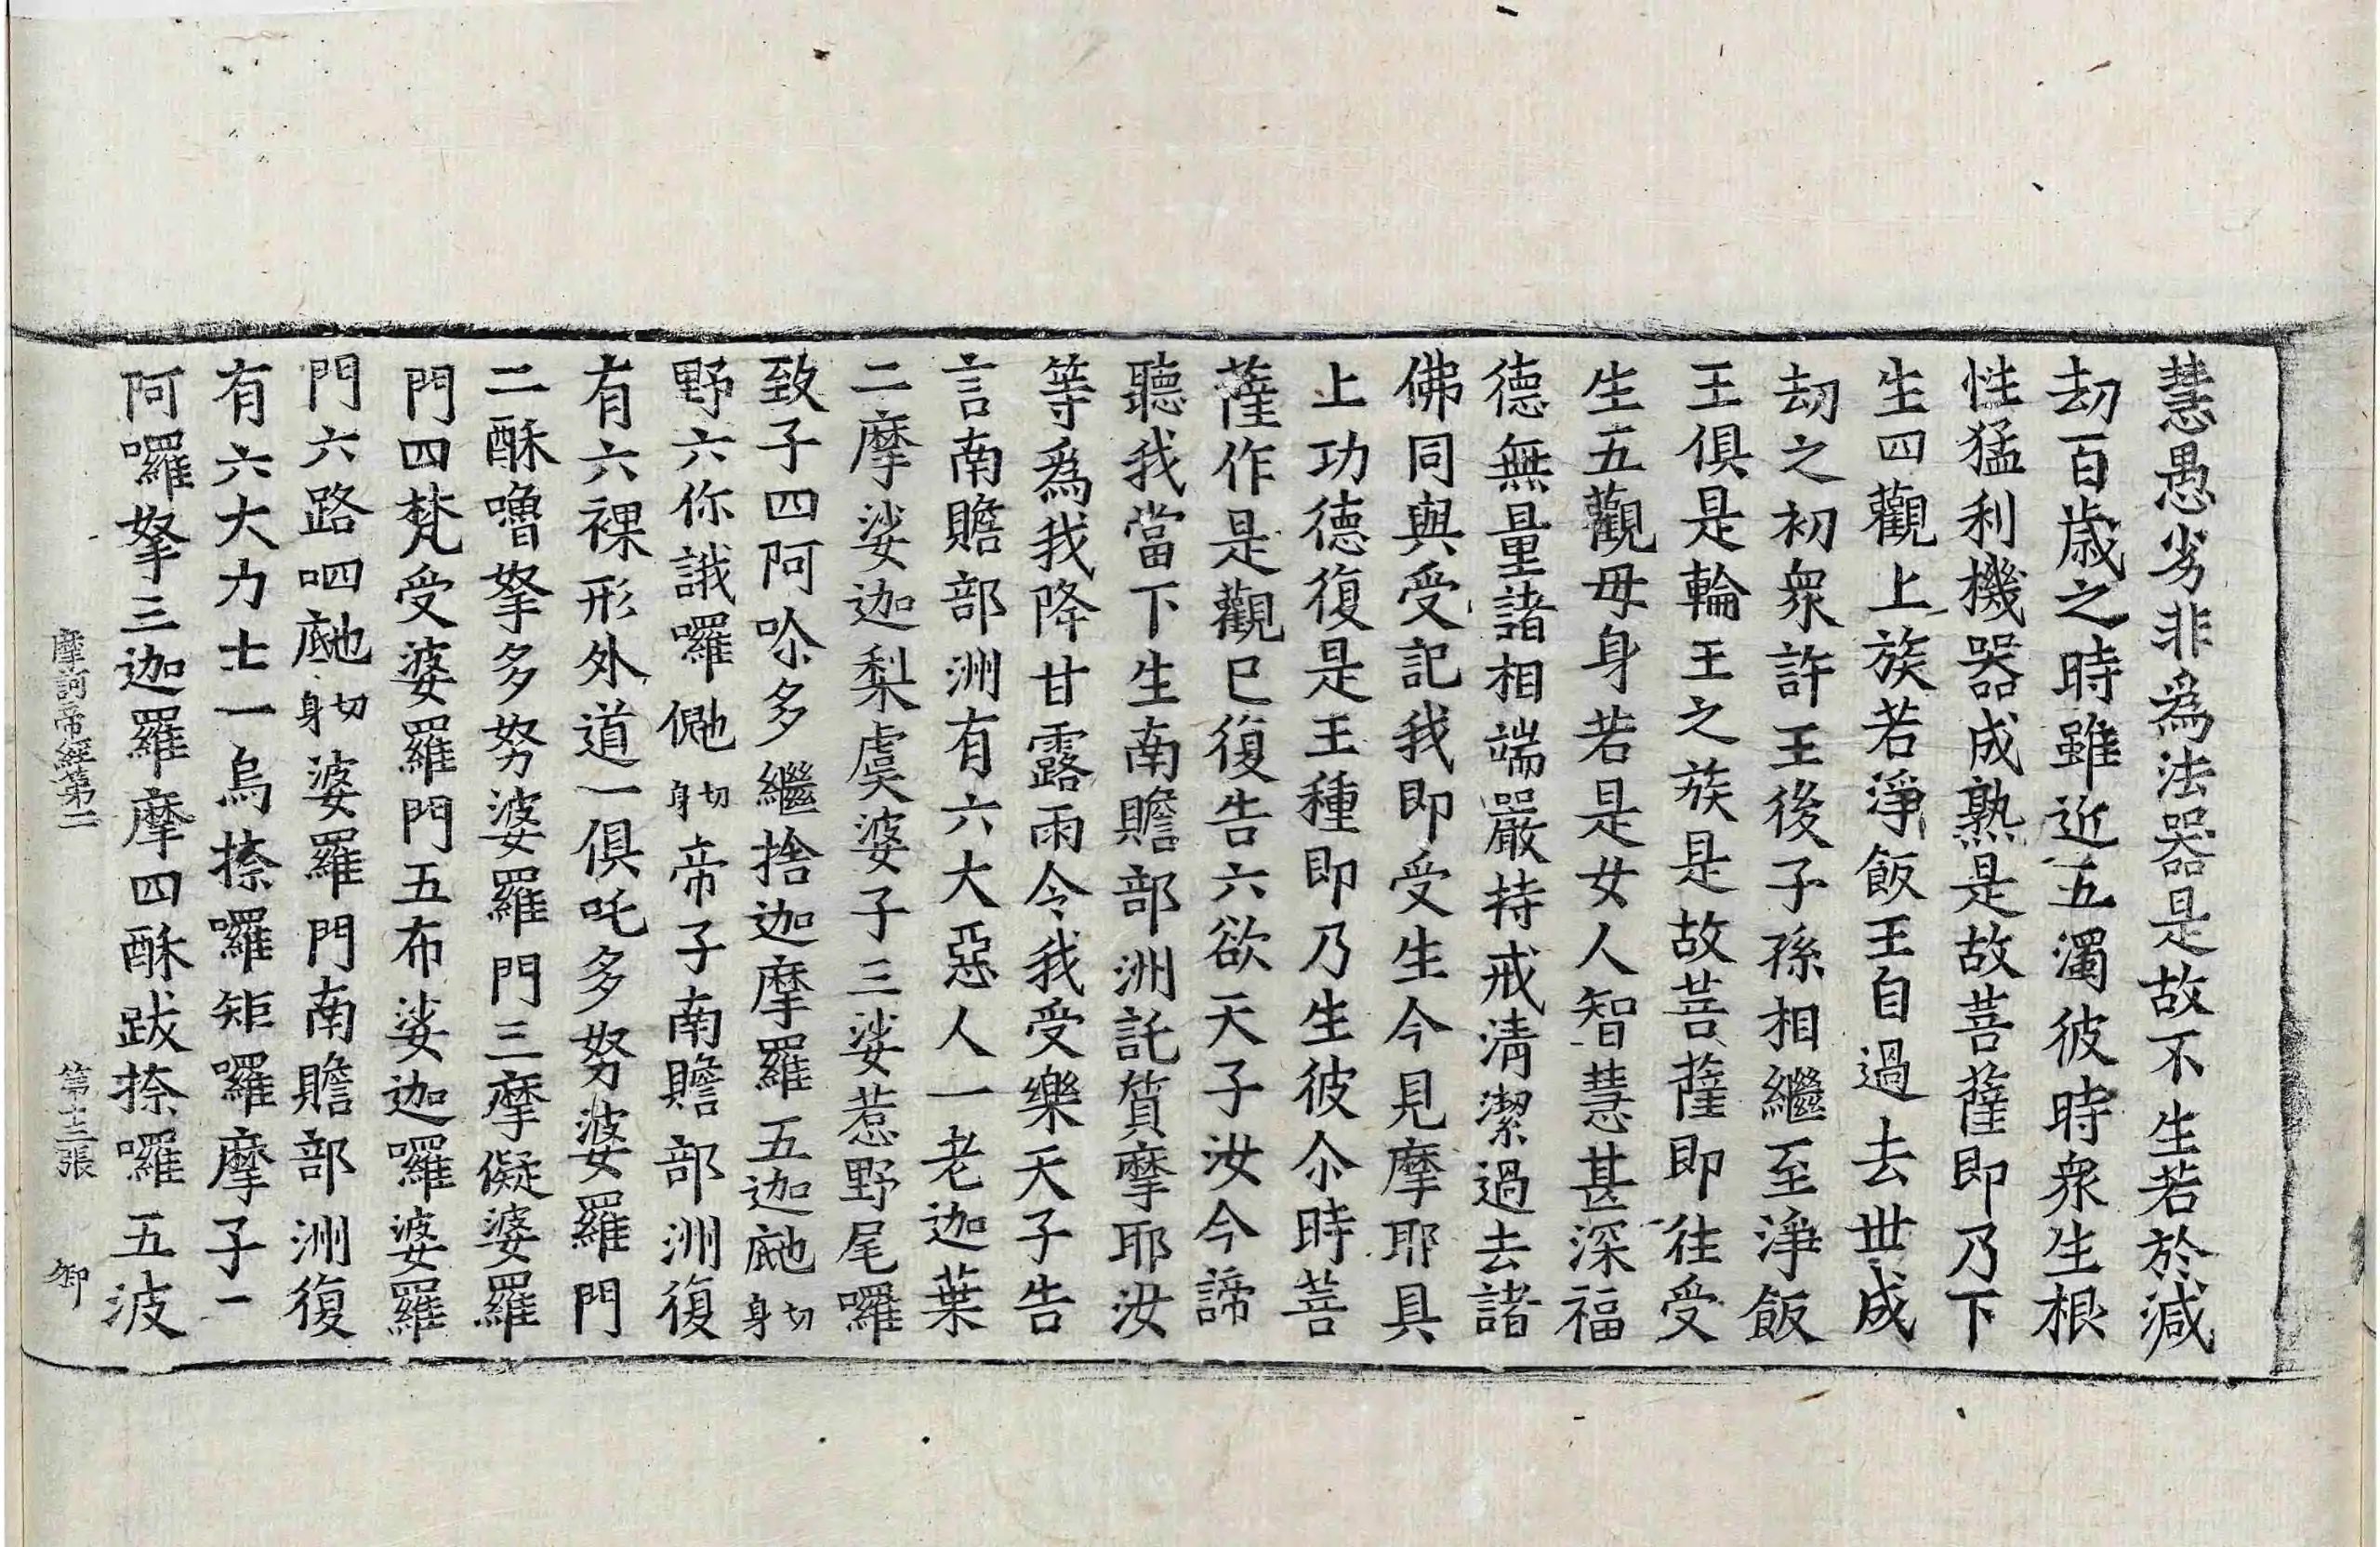 慧愚劣非為法器是故不生若於減
劫百歲之時雖近五濁彼時衆生根
性猛利機器成熟是故菩薩即乃下
生四觀上族若淨飯王自過去世成
劫之初衆許王後子孫相繼至淨飯
王俱是輪王之族是故菩薩即往受
生五觀母身若是女人智慧甚深福
德無量諸相端嚴持戒清潔過去諸
佛同與受記我即受生今見摩耶具
上功德復是王種即乃生彼尒時菩
薩作是觀已復告六欲天子汝今諦
聽我當下生南贍部洲託質摩耶汝
等爲我降甘露雨令我受樂天子告
言南贍部洲有六大惡人一老迦葉
二摩娑迦梨虞婆子三娑惹野尾囉
致子四阿唥多繼捨迦摩羅五迦𪘨切身
野六你誐囉切身帝子南贍部洲復
有六裸形外道一俱吒多努婆羅門
二酥嚕拏多努婆羅門三摩儗婆羅
門四梵受婆羅門五布娑迦囉婆羅
門六路呬切身婆羅門南贍部洲復
有六大力士一烏捺囉矩囉摩子一
阿囉拏三迦羅摩四酥跋捺囉五波
摩訶帝經第二 第十三張 御